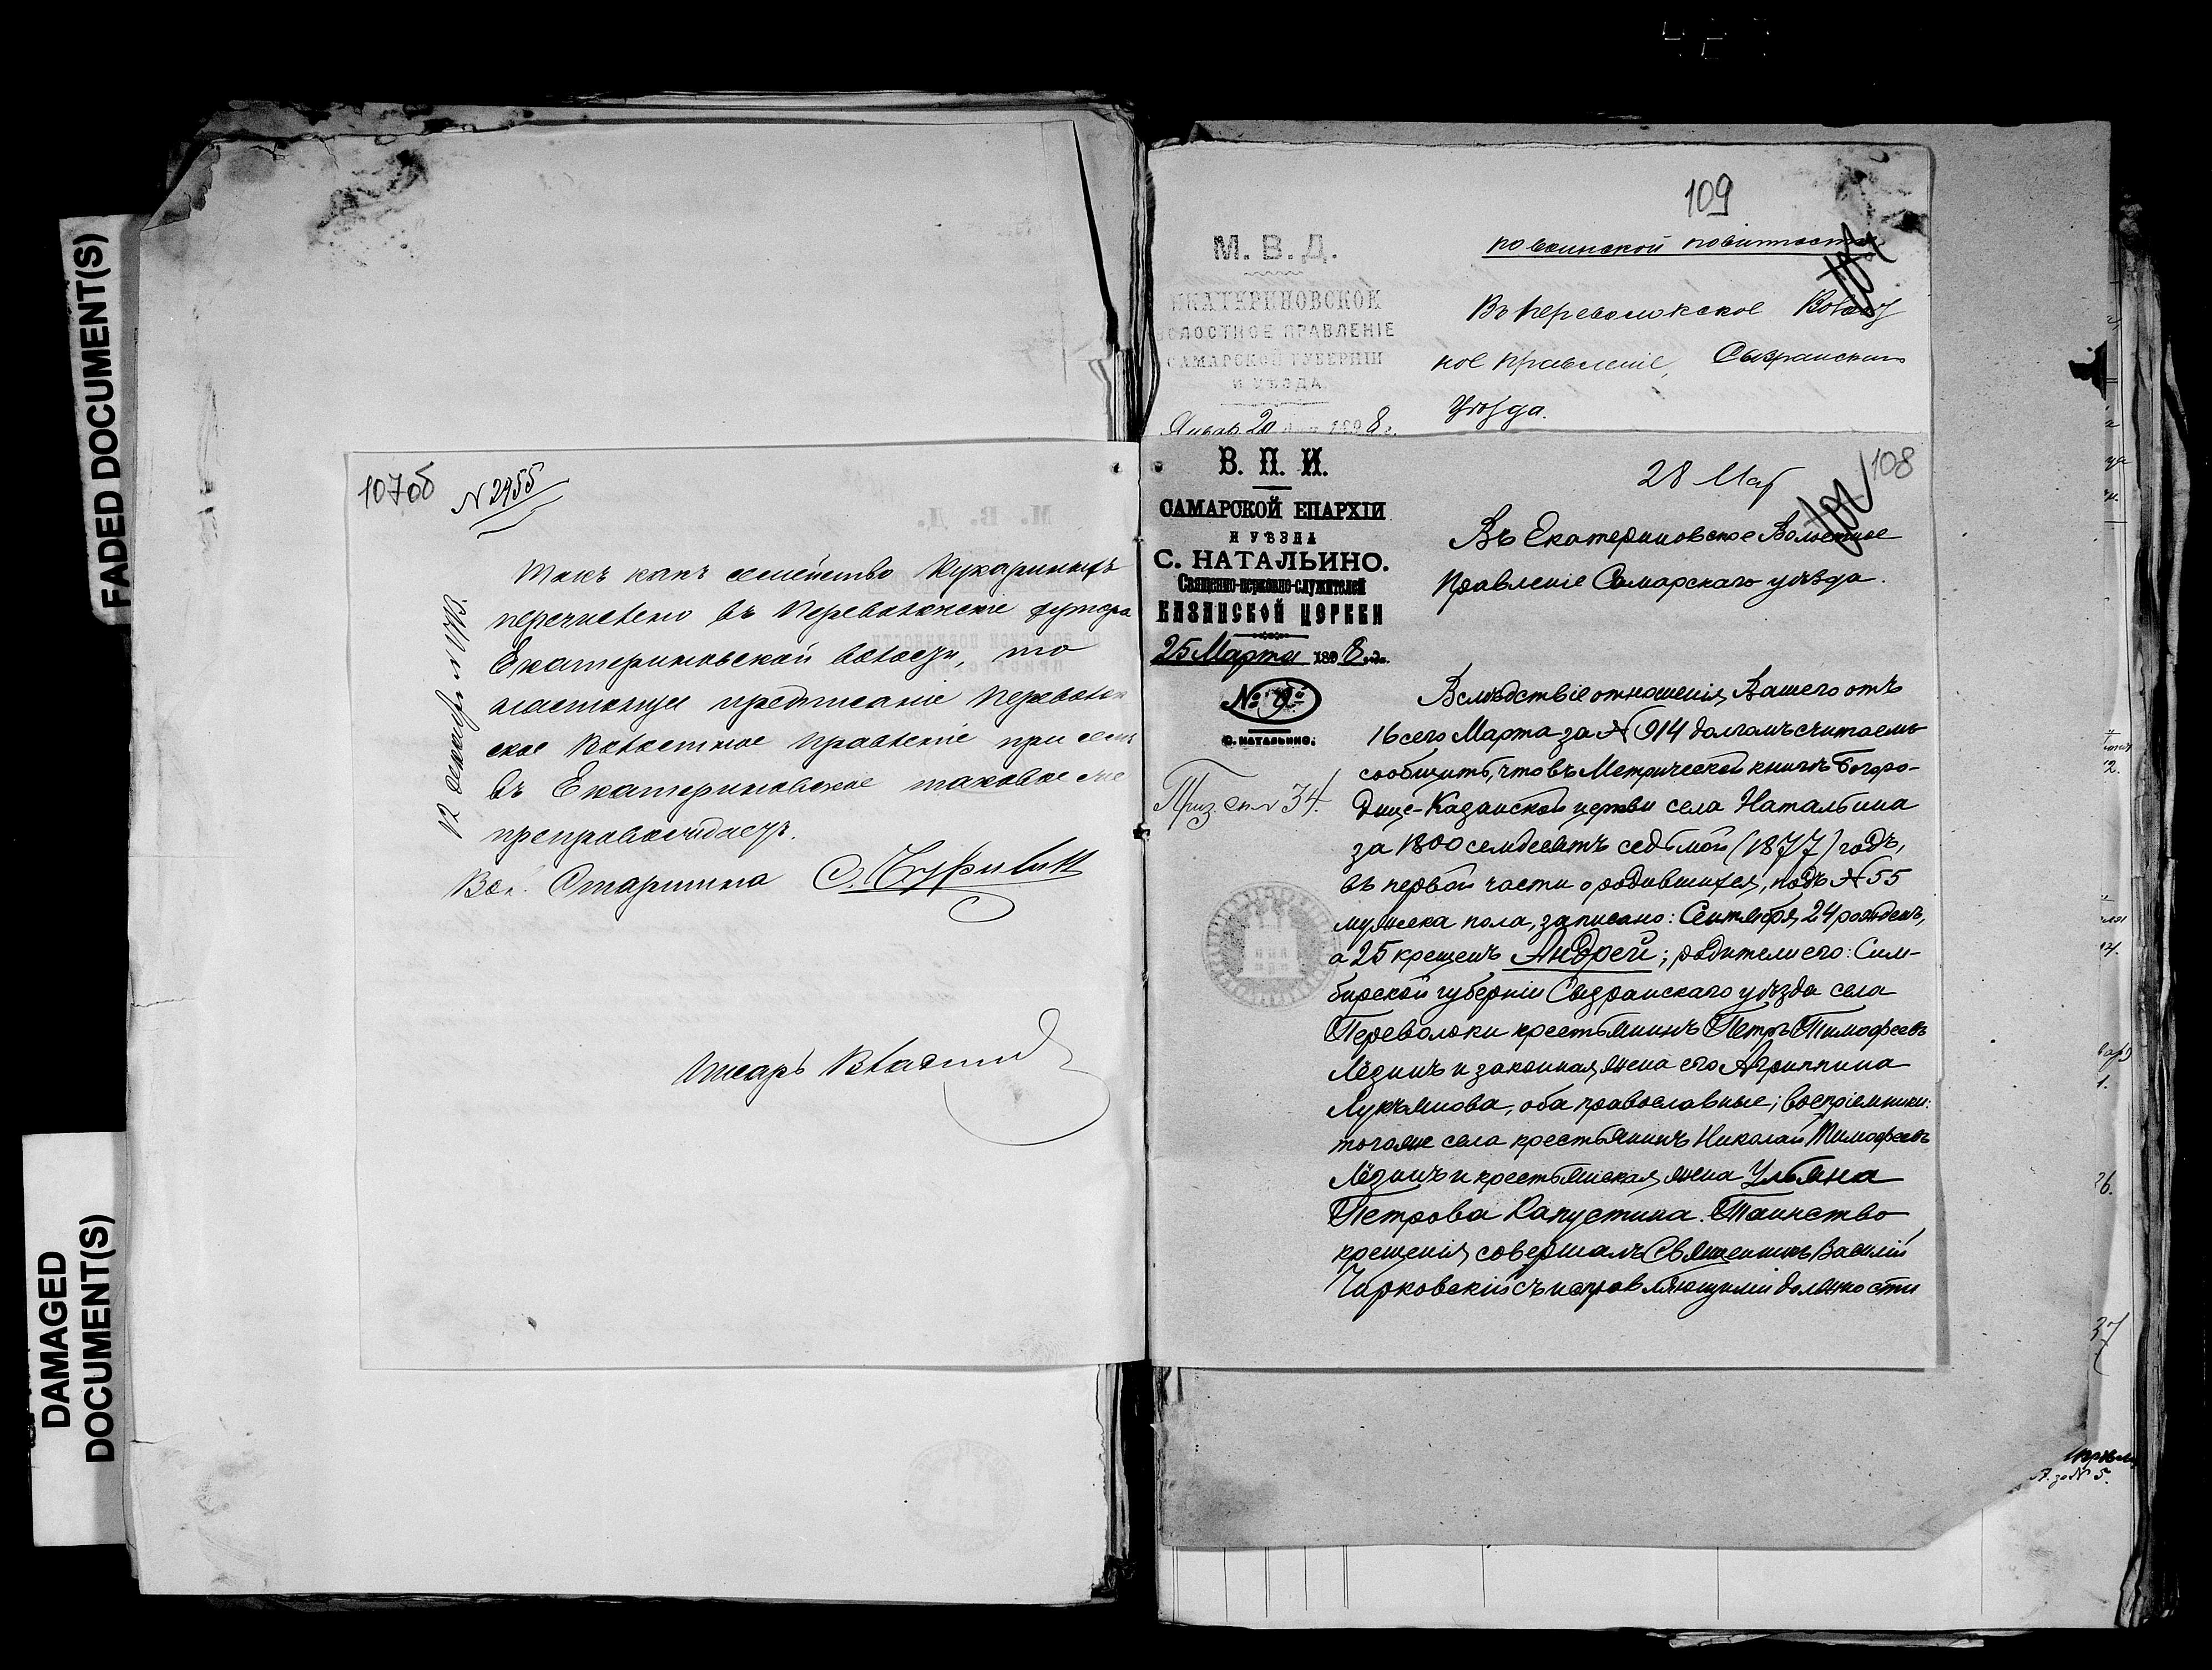 FADED DOCUMENT(S)
DAMAGED
DOCUMENT(S)
107об
N 2455
12 декабр. N 1748.
Такъ какъ семейство Кукариныхъ
перечислено въ Переволокскіе хутора
Екатериновской волости, то
настоящее предписаніе Переволок
ское Волостное Правленіе при семъ
въ Екатериновское таковое же
препровождаетъ.
Вол. Старшина
Писарь
109
по воинской повинности
М. В. Д.
ЕКАТЕРИНОВСКОЕ
ВОЛОСТНОЕ ПРАВЛЕНІЕ
САМАРСКОЙ ГУБЕРНІИ
И УѢЗДА.
Январ 20 дня 1898 г.
Въ Переволокское Волост
ное Правленіе, Сызранскаго
Уѣзда.
В. П. И.
САМАРСКОЙ ЕПАРХІИ
И УѢЗДА
С. НАТАЛЬИНО.
Священно-церковно-служителей
КАЗАНСКОЙ ЦЕРКВИ
25 Марта 1898 года.
№
С. НАТАЛЬИНО.
Приз. сп. N 34.
28 Мар
108
Въ Екатериновское Волостное
Правленіе Самарскаго уѣзда.
Вслѣдствіе отношенія Вашего отъ
16 сего Марта за N 914 долгомъ считаемъ
сообщить, что въ Метрической книгѣ Богоро-
дице-Казанской церкви села Натальина
за 1800 семдесятъ седьмой (1877) годъ,
въ первой части о родившихся, подъ N 55
мужска пола, записано: Сентября 24 рожденъ,
а 25 крещенъ Андрей; родители его: Сим-
бирской губерніи Сызранскаго уѣзда села
Переволоки крестьянинъ Петръ Тимофеевъ
Лёзинъ и законная жена его Агриппина
Лукьянова, оба православные; воспріемники:
тогоже села крестьянинъ Николай Тимофеевъ
Лёзинъ и крестьянская жена Ульяна
Петрова Капустина. Таинство
крещенія совершалъ Священникъ Василій
Чарковскій съ исправляющими должности